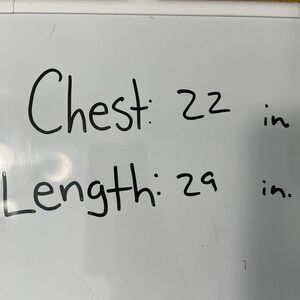 Chest: 22 in
Length: 29 in.